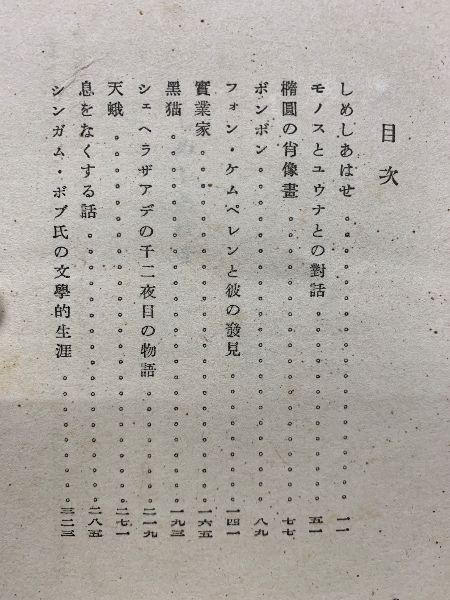 目次
しめしあはせ。。。。。。。。。。。。。。。。。一一
モノスとユウナとの對話。。。。。。。。。。。五一
橢圓の肖像畫。。。。。。。。。。。。。。。。七七
ボンボン。。。。。。。。。。。。。。。。。。八九
フォン・ケムペレンと彼の發見。。。。。。。一四一
實業家。。。。。。。。。。。。。。。。。。一六五
黑猫。。。。。。。。。。。。。。。。。。。一九三
シェヘラザアデの千二夜目の物語。。。。。。二一九
天蛾。。。。。。。。。。。。。。。。。。。二七一
息をなくする話。。。。。。。。。。。。。。二八五
シンガム・ボブ氏の文學的生涯。。。。。。。三二三